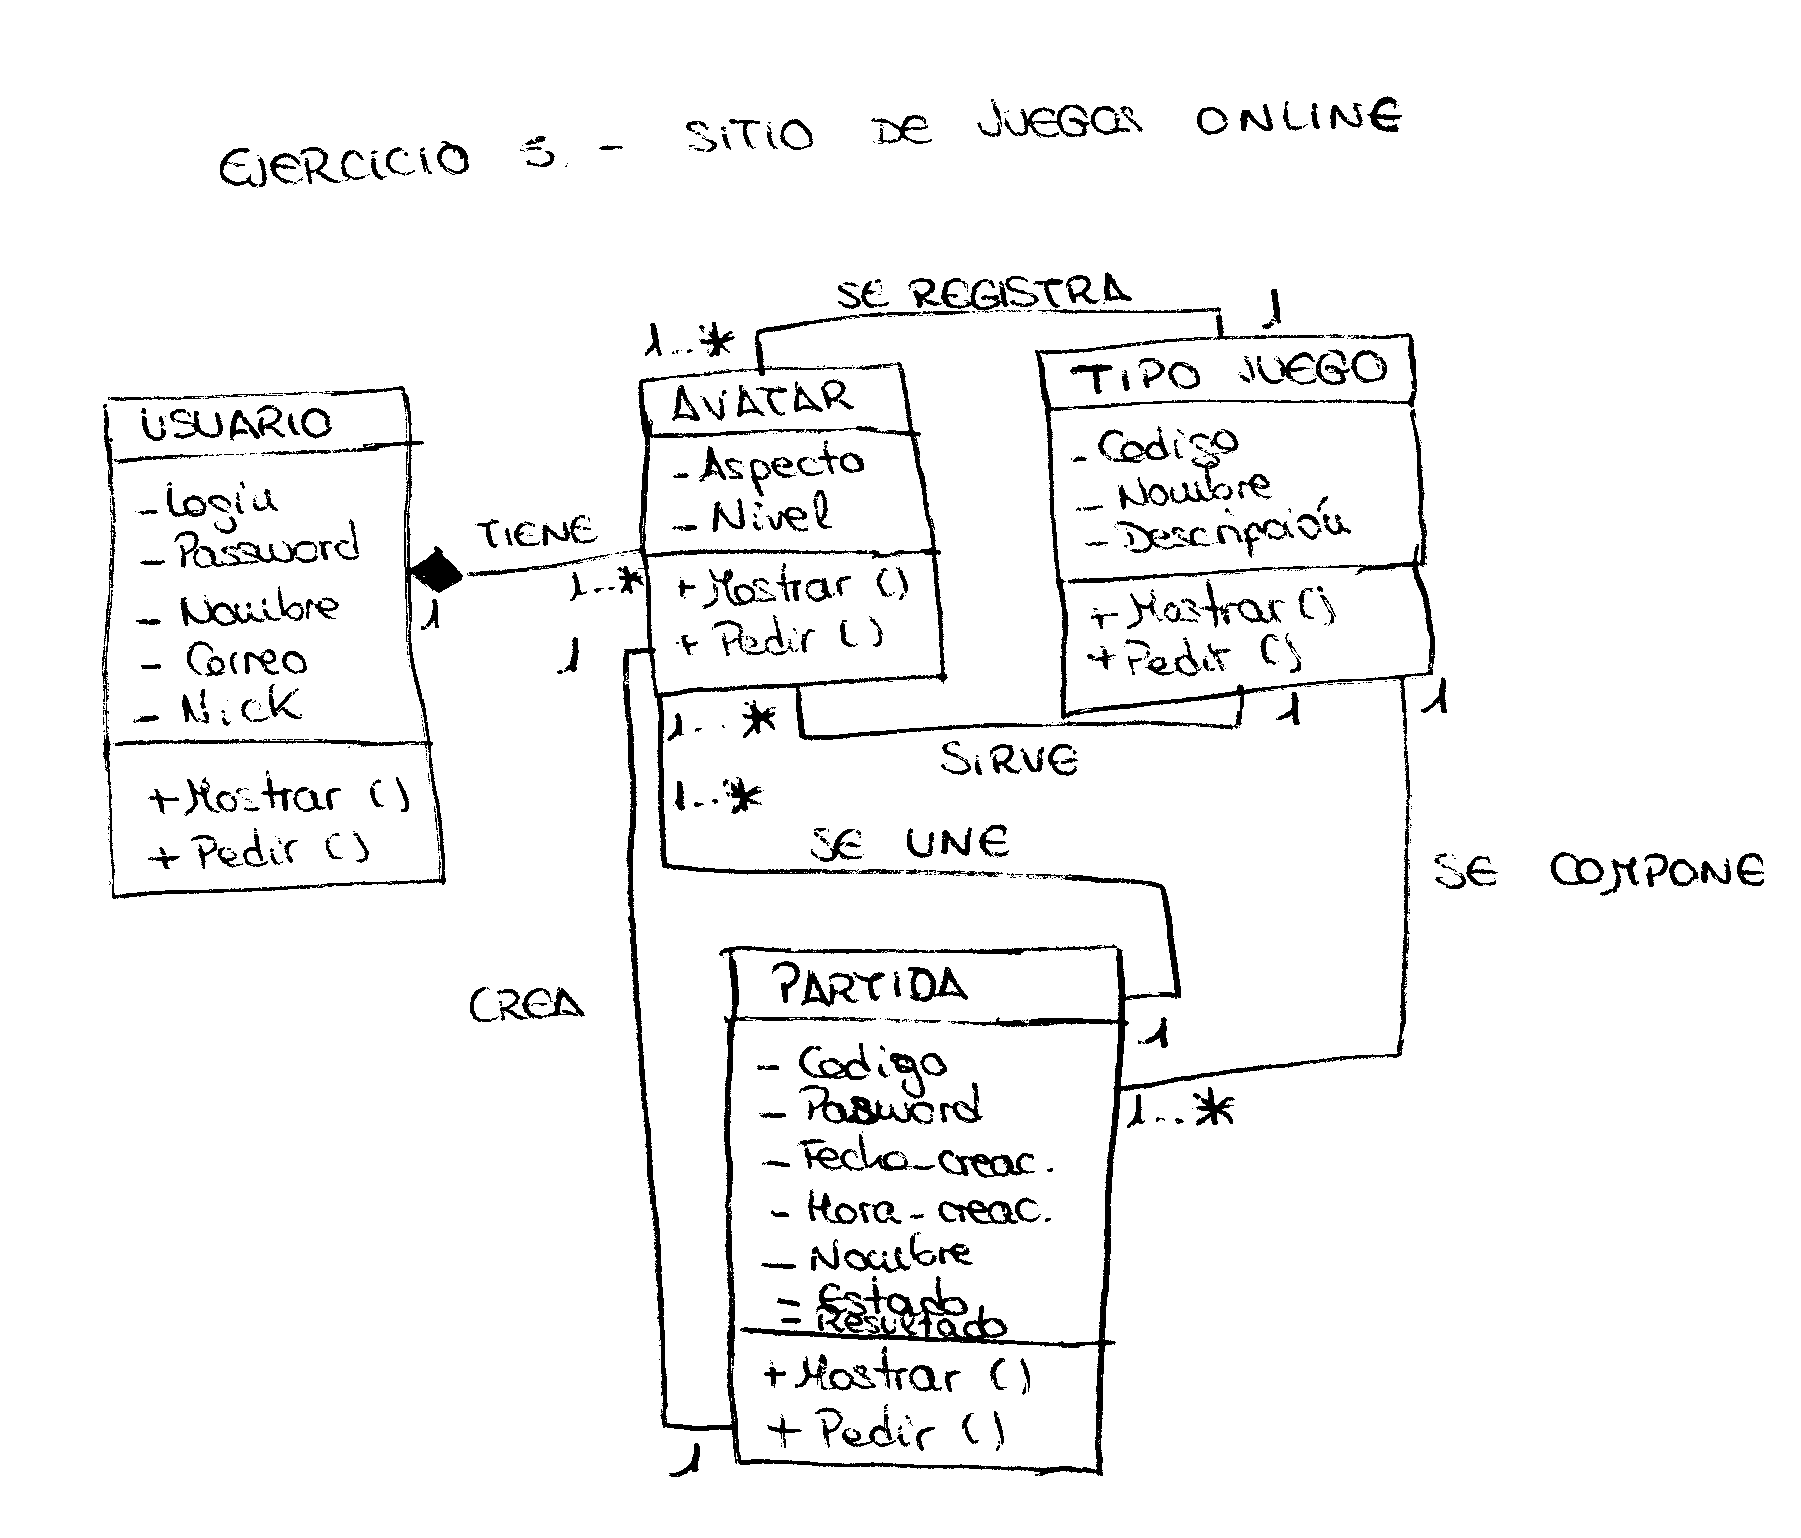 EJERCICIO 5. - SITIO DE JUEGOS ONLINE
SE REGISTRA
1..*
1
USUARIO
- Login
- Password
- Nombre
- Correo
- Nick
+ Mostrar ()
+ Pedir ()
TIENE
1
1..*
AVATAR
- Aspecto
- Nivel
+ Mostrar ()
+ Pedir ()
TIPO JUEGO
- Codigo
- Nombre
- Descripción
+ Mostrar ()
+ Pedir ()
1
1..*
1
1
SIRVE
1..*
SE UNE
SE COMPONE
CREA
PARTIDA
- Codigo
- Password
- Fecha_creac.
- Hora_creac.
- Nombre
- Estado
- Resultado
+ Mostrar ()
+ Pedir ()
1
1..*
1